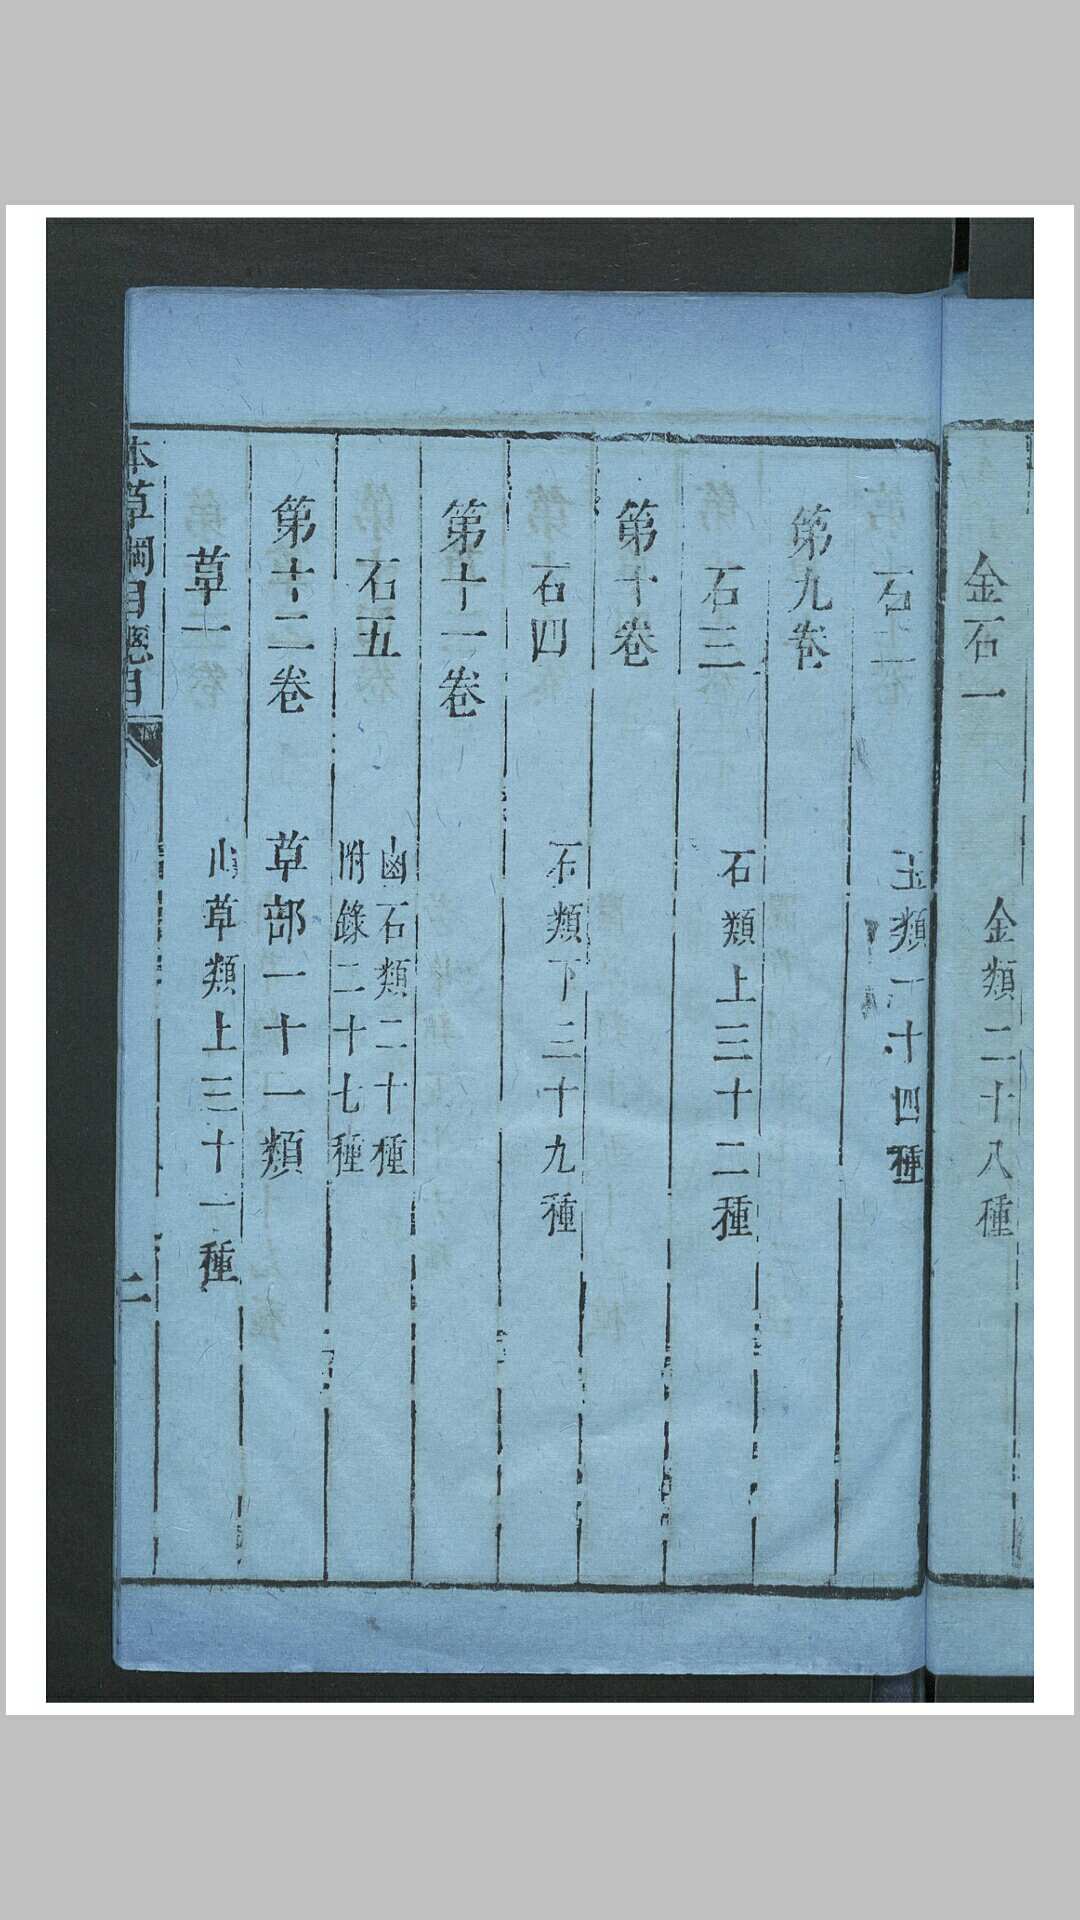 金石一　金類二十八種
石二　玉類一十四種
第九卷
石三　石類上三十二種
第十卷
石四　石類下三十九種
第十一卷
石五　鹵石類二十種
附錄二十七種
第十二卷　草部一十一類
草一　山草類上三十一種
本草綱目總目　二